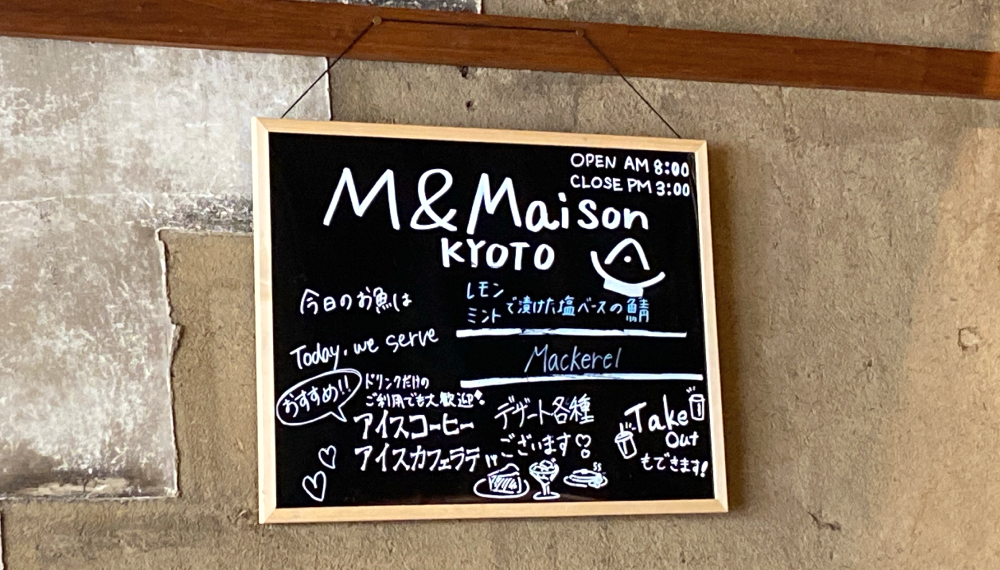 OPEN AM 8:00
CLOSE PM 3:00
M&Maison
KYOTO
今日のお魚は
レモン
ミント
で漬けた塩ベースの鯖
Today, we serve
Mackerel
おすすめ!!
ドリンクだけの
ご利用でも大歓迎
アイスコーヒー
アイスカフェラテ
デザート各種
ございます♡
Take
Out
もできます!